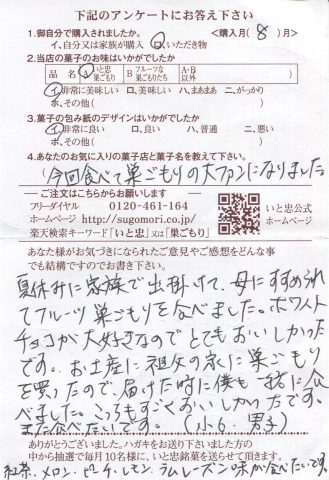 下記のアンケートにお答え下さい
1.御自分で購入されましたか。 <購入月( 8 )月>
イ.自分又は家族が購入 ロ.いただき物
2.当店の菓子のお味はいかがでしたか
品 名 A いと忠巣ごもり B フルーツな巣ごもりたち A・B以外
イ.非常に美味しい ロ.美味しい ハ.まあまあ ニ.がっかり
ホ.その他( )
3.菓子の包み紙のデザインはいかがでしたか
イ.非常に良い ロ.良い ハ.普通 ニ.悪い
ホ.その他( )
4.あなたのお気に入りの菓子店と菓子名を教えて下さい。
今回食べて巣ごもりの大ファンになりました
―ご注文はこちらからお願いします―
フリーダイヤル 0120-461-164
ホームページ http://sugomori.co.jp/
楽天検索キーワード「いと忠」又は「巣ごもり」
いと忠公式
ホームページ
あなた様がお気づきになられたご意見やご感想をどんな事
でも結構ですのでお書き下さい。
夏休みに家族で出掛けて、母にすすめられ
てフルーツ巣ごもりを食べました。ホワイト
チョコが大好きなのでとてもおいしかった
です。お土産に祖父の家に巣ごもり
を買ったので、届けた時に僕も一緒に食
べました。こちらもすごくおいしかったです。
また食べたいです。(小6 男子)
ありがとうございました。ハガキをお送り下さいました方の
中から抽選で毎月10名様に、いと忠銘菓を送らせて頂きます。
紅茶、メロン、ピーチ、レモン、ラムレーズン味が食べたいです。